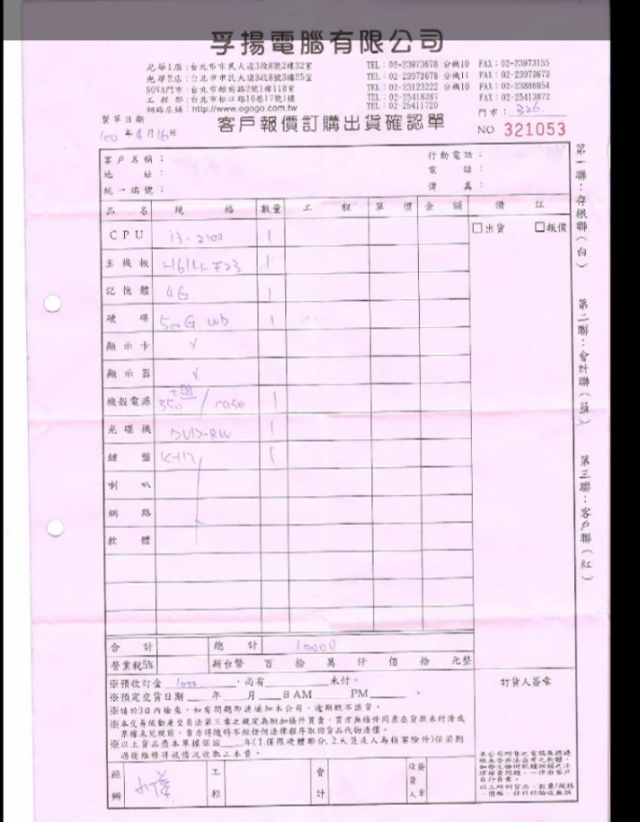 孚揚電腦有限公司
光華1店:台北市市民大道3段8號2樓32室 TEL:02-23973678 分機10 FAX:02-23973155
光華2店:台北市市民大道3段8號3樓25室 TEL:02-23973678 分機11 FAX:02-23973673
NOVA門市:台北市館前路2號1樓118室 TEL:02-23123222 分機10 FAX:02-23886954
工程部:台北市松江路16巷17號1樓 TEL:02-25418287 FAX:02-25413872
網路店鋪:http://www.egogo.com.tw TEL:02-25411720
門市:326
製單日期
100年4月16日
客戶報價訂購出貨確認單
NO 321053
客戶名稱: 行動電話:
地址: 電話:
統一編號: 傳真:
品名 規格 數量 工程 單價 金額 備註
CPU i3-2100 1 □出貨 □報價
主機板 H61M 1
記憶體 4G 1
硬碟 500G WD 1
顯示卡 x
顯示器 x
機殼電源 350 / case 1
光碟機 DVD-RW 1
鍵盤 K+M 1
喇叭
網路
軟體
合計 總計 10000
營業稅5% 新台幣 百 拾 萬 仟 佰 拾 元整
※預收訂金 1000 ,尚有 未付。
※預定交貨日期 年 月 日 AM PM 。
※請於3日內檢查,如有問題即速通知本公司,逾期恕不退貨。
※本交易依動產交易法第三章之規定為附加條件買賣,買方無條件同意在貨款未付清或
票據未兌現前,賣方得隨時不經任何法律程序取回貨品代物清償。
※以上貨品憑本單據保固 年(1.僅限硬體部分,2.天災及人為損害除外)保固期
過後維修得視情況收取工本費。
訂貨人簽章
經辦 工程 會計 收貨人簽章
第一聯:存根聯(白)
第二聯:會計聯(藍)
第三聯:客戶聯(紅)